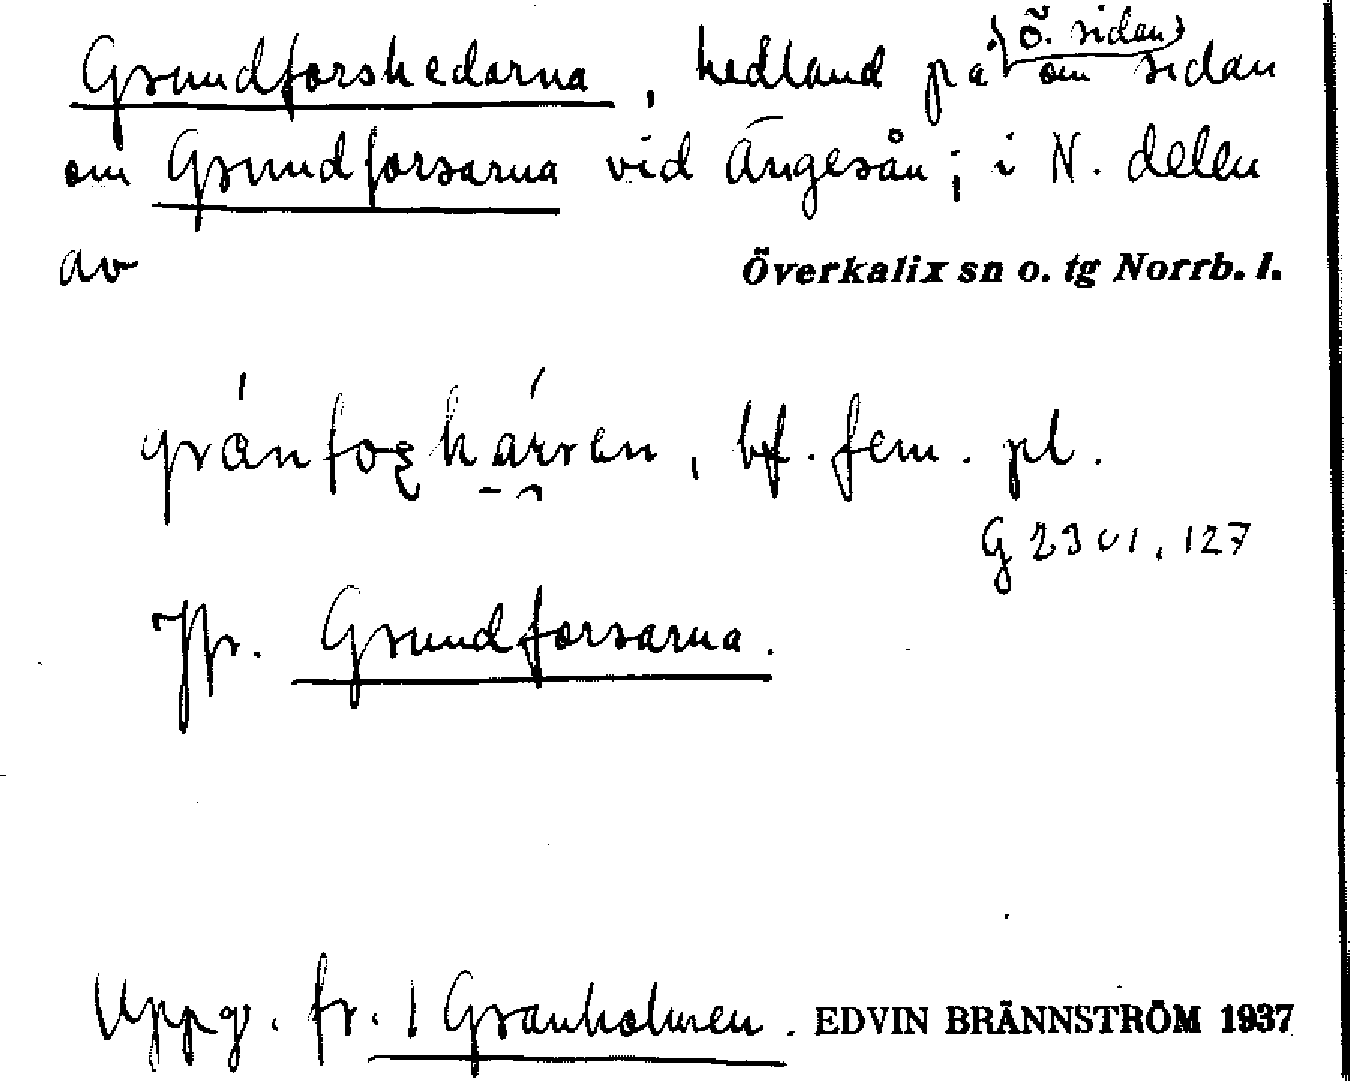 Grundforshedarna, hedland på Ö. sidan om sidan
om Grundforsarna vid Ängesån; i N. delen
av Överkalix sn o. tg Norrb. l.
bf. fem. pl.
G 2301, 127
Jfr. Grundforsarna.
Uppg. fr. 1 Granholmen. EDVIN BRÄNNSTRÖM 1937